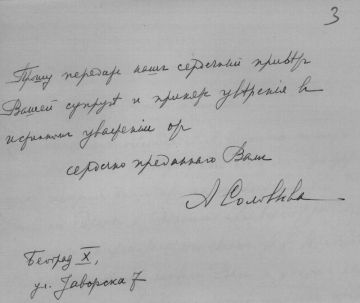 3
Прошу передать нашъ сердечный привѣтъ
Вашей супругѣ и принять увѣрения въ
искреннемъ уваженіи отъ
сердечно преданнаго Вамъ
А Соловьева
Београд X,
ул. Јаворска 7